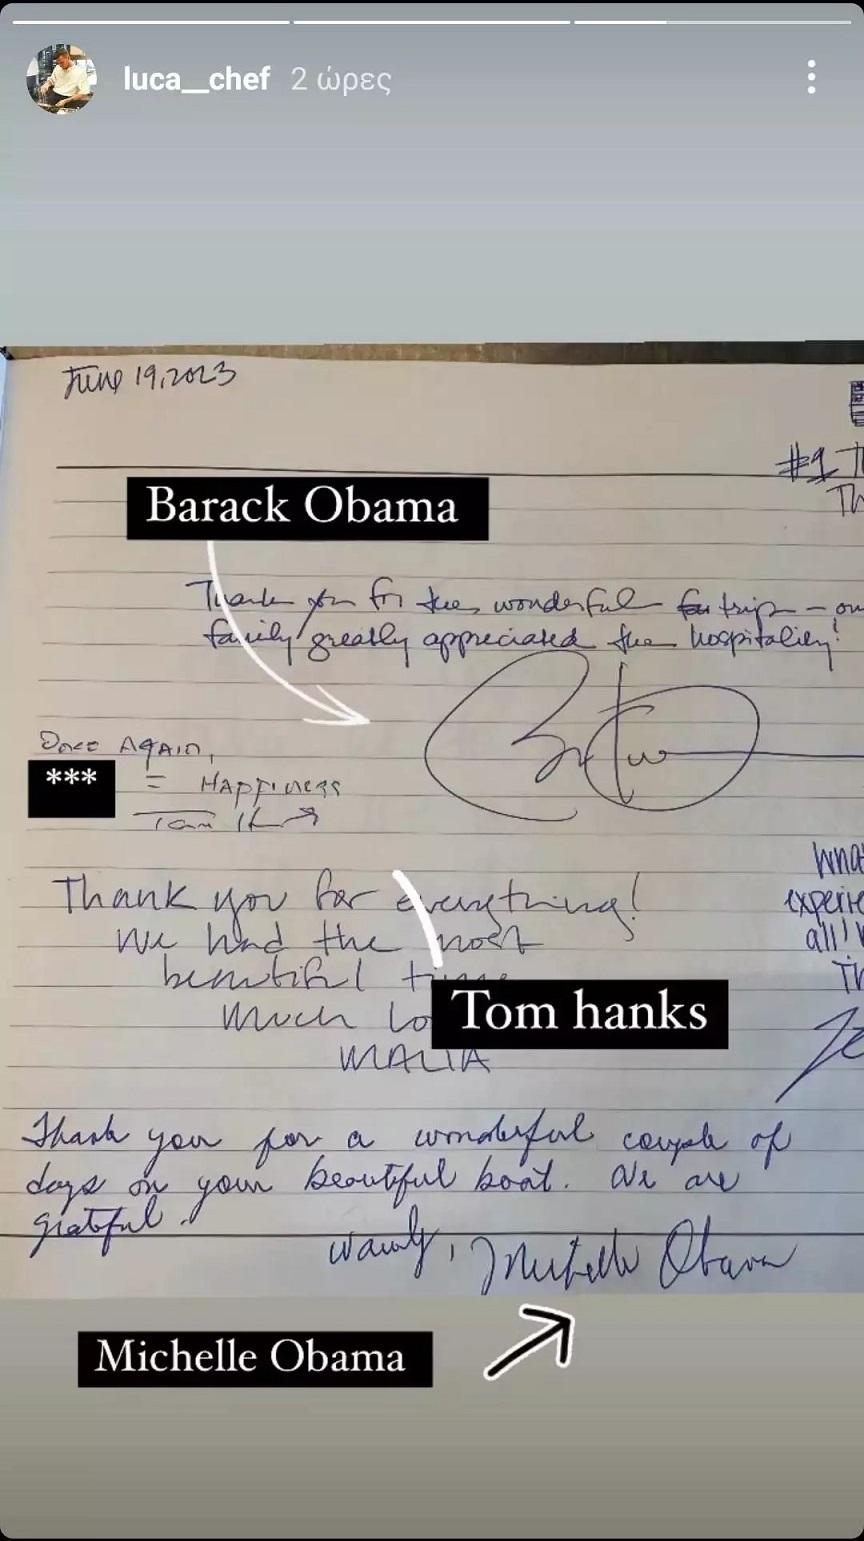 luca__chef 2 ώρες
June 19, 2023
#1
Th
Barack Obama
Thank you for the wonderful trip - our
family greatly appreciated the hospitality!
Once Again,
*** = Happiness
Tom H
Thank you for everything!
We had the most
beautiful time
Much Lo
MALIA
Tom hanks
What
experie
all!
Th
Thank you for a wonderful couple of
days on your beautiful boat. We are
grateful.
Warmly, Michelle Obama
Michelle Obama